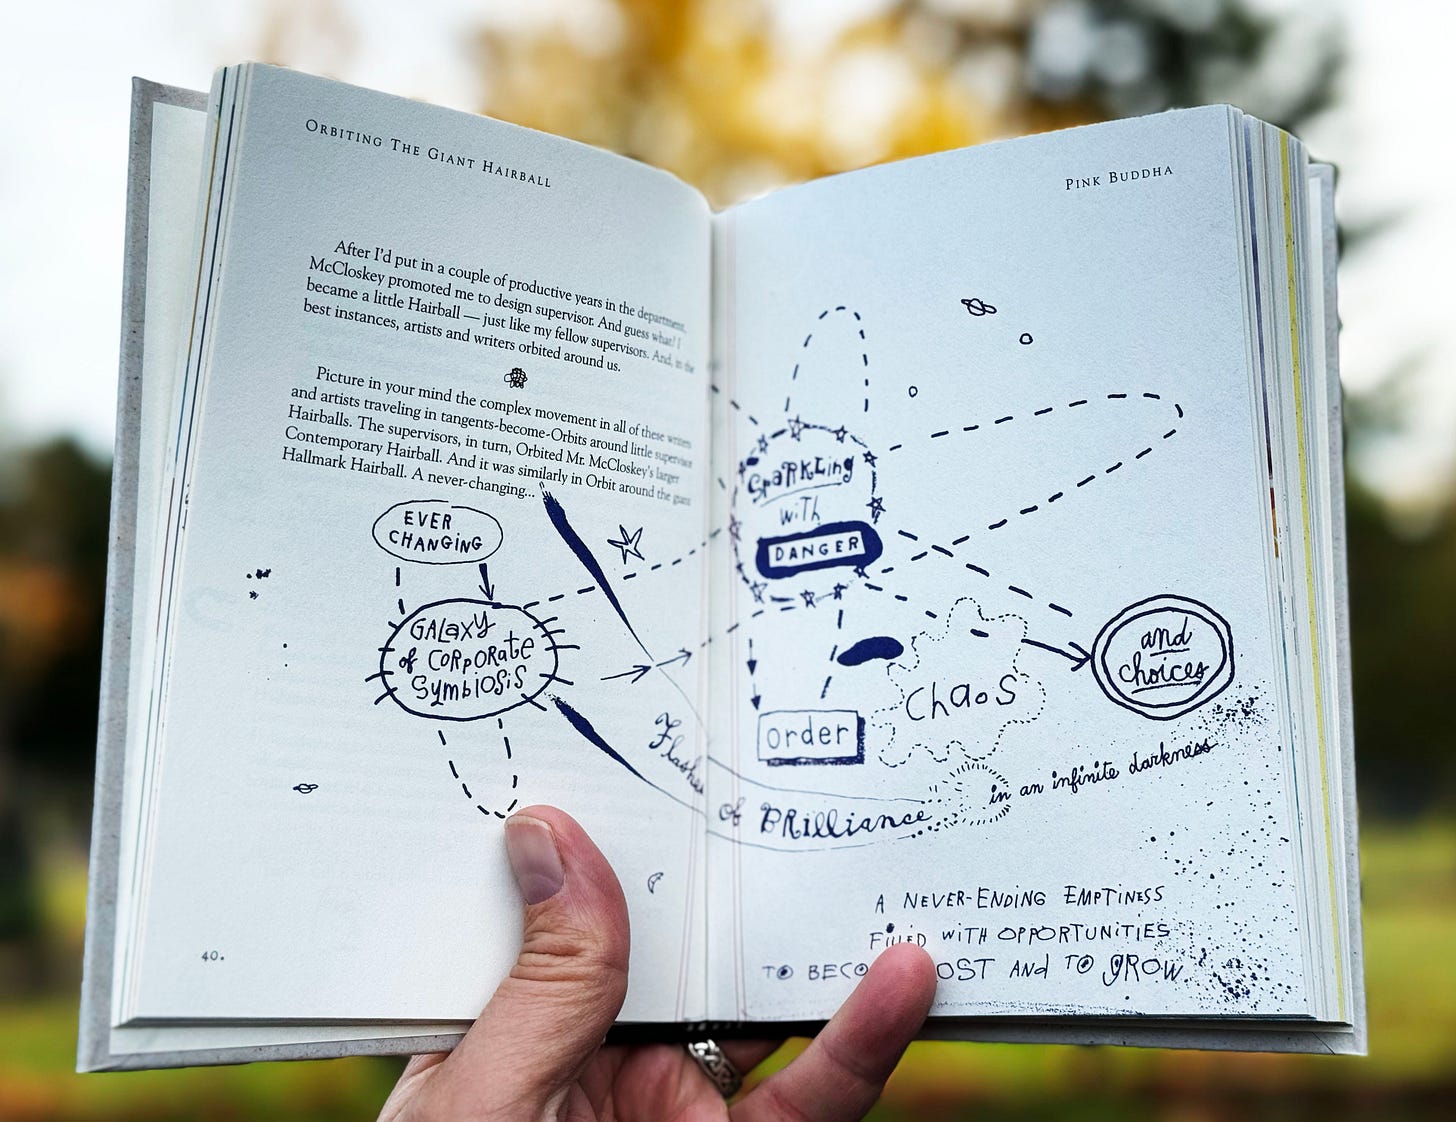 ORBITING THE GIANT HAIRBALL
After I'd put in a couple of productive years in the department,
McCloskey promoted me to design supervisor. And guess what? I
became a little Hairball — just like my fellow supervisors. And, in the
best instances, artists and writers orbited around us.
Picture in your mind the complex movement in all of these writers
and artists traveling in tangents-become-Orbits around little supervisor
Hairballs. The supervisors, in turn, Orbited Mr. McCloskey's larger
Contemporary Hairball. And it was similarly in Orbit around the giant
Hallmark Hairball. A never-changing...
EVER
CHANGING
GALAXY
of CORPORATE
SYMBIOSIS
40.
PINK BUDDHA
SPARKLING
WITH
DANGER
and
choices
Chaos
Order
Flashes
of BRILLIANCE
in an infinite darkness
A NEVER-ENDING EMPTINESS
FILLED WITH OPPORTUNITIES
TO BECO OST AND TO GROW